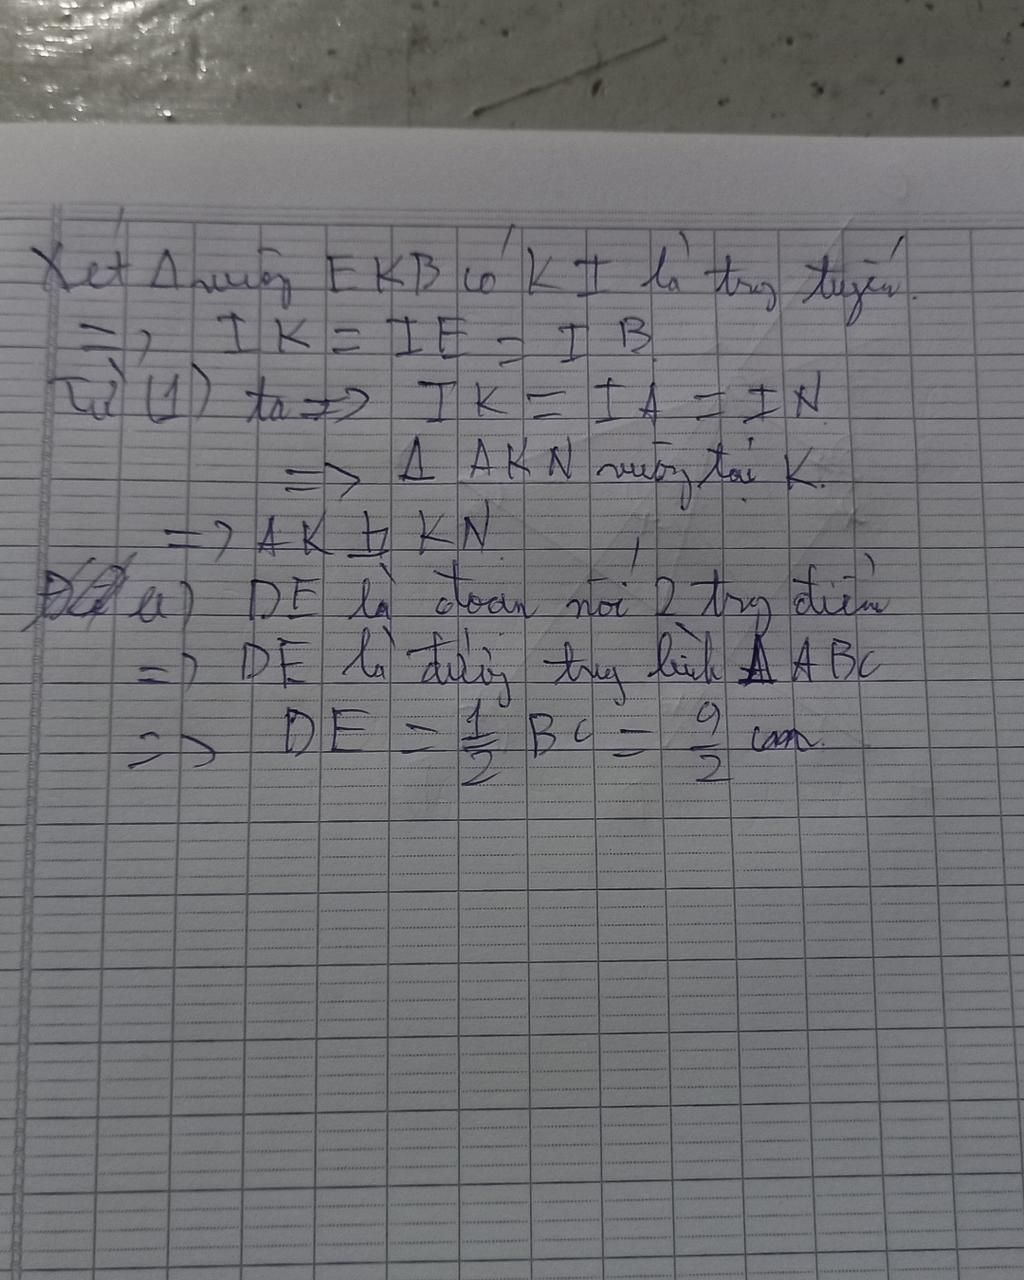 Xét Δ vuông EKB có KI là trg tuyến.
=> IK = IE = IB
Từ (1) ta => IK = IA = IN
=> Δ AKN vuông tại K.
=> AK ⊥ KN
a) DE là đoạn nối 2 trg điểm
=> DE là đường trg bình Δ ABC
=> DE = 1/2 BC = 9/2 cm.